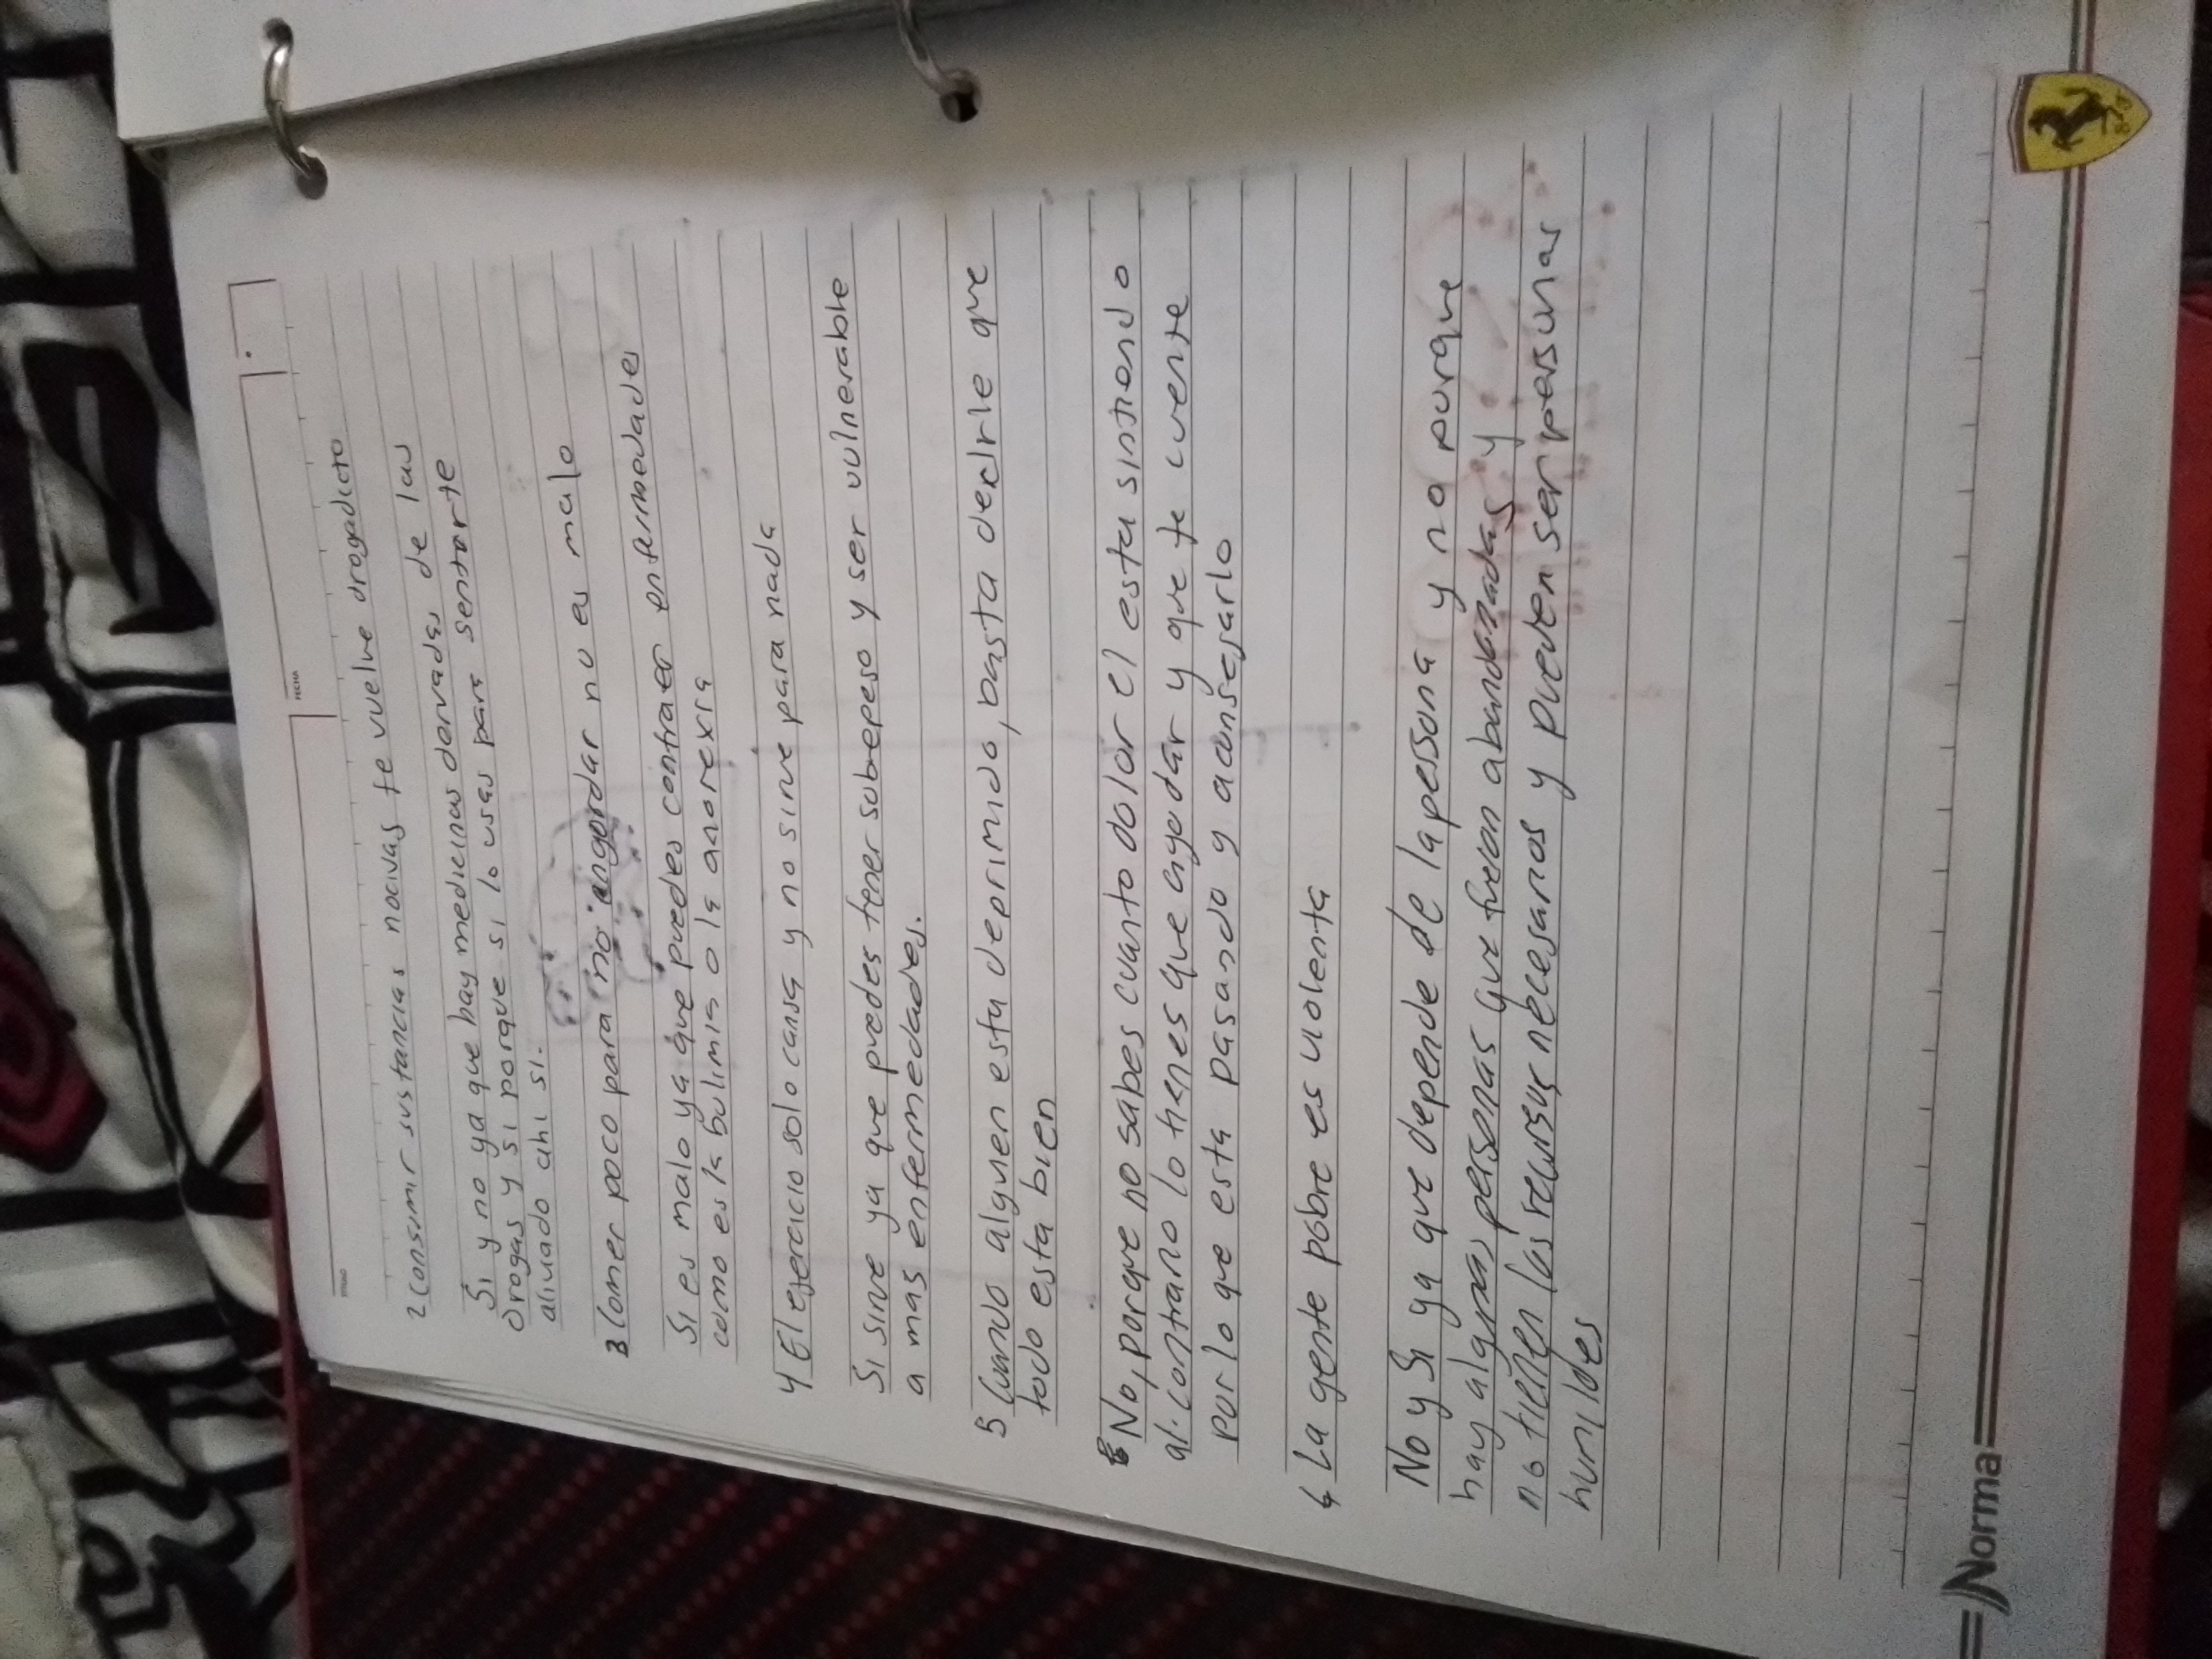 TITULO
FECHA
2 Consumir sustancias nocivas te vuelve drogadicto
Si y no ya que hay medicinas dervades de las
Drogas y si porque si lo usas para sentarte
aliviado ahi si.
3 Comer poco para no engordar no es malo
Si es malo ya que puedes contraer enfermedades
como es la bulimia o la anorexia
4 El ejercicio solo cansa y no sirve para nada
Si sirve ya que puedes tener sobepeso y ser vulnerable
a mas enfermedades.
5 Cuando alguien esta deprimido, basta decirle que
todo esta bien
No, porque no sabes cuanto dolor el esta sintiendo
al contrario lo tienes que ayudar y que te cuente
por lo que esta pasando y aconsejarlo
6 La gente pobre es violenta
No y Si ya que depende de la persona y no porque
hay algunas personas que fueron abandonadas y
no tienen los recursos necesarios y pueden ser personas
humildes
Norma
SF